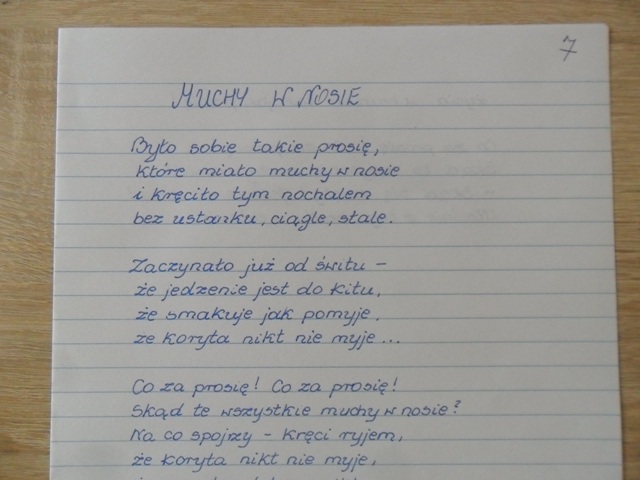 7
MUCHY W NOSIE
Było sobie takie prosię,
które miało muchy w nosie
i kręciło tym nochalem
bez ustanku, ciągle, stale.
Zaczynało już od świtu –
że jedzenie jest do kitu,
że smakuje jak pomyje,
że koryta nikt nie myje...
Co za prosię! Co za prosię!
Skąd te wszystkie muchy w nosie?
Na co spojrzy – kręci ryjem,
że koryta nikt nie myje,